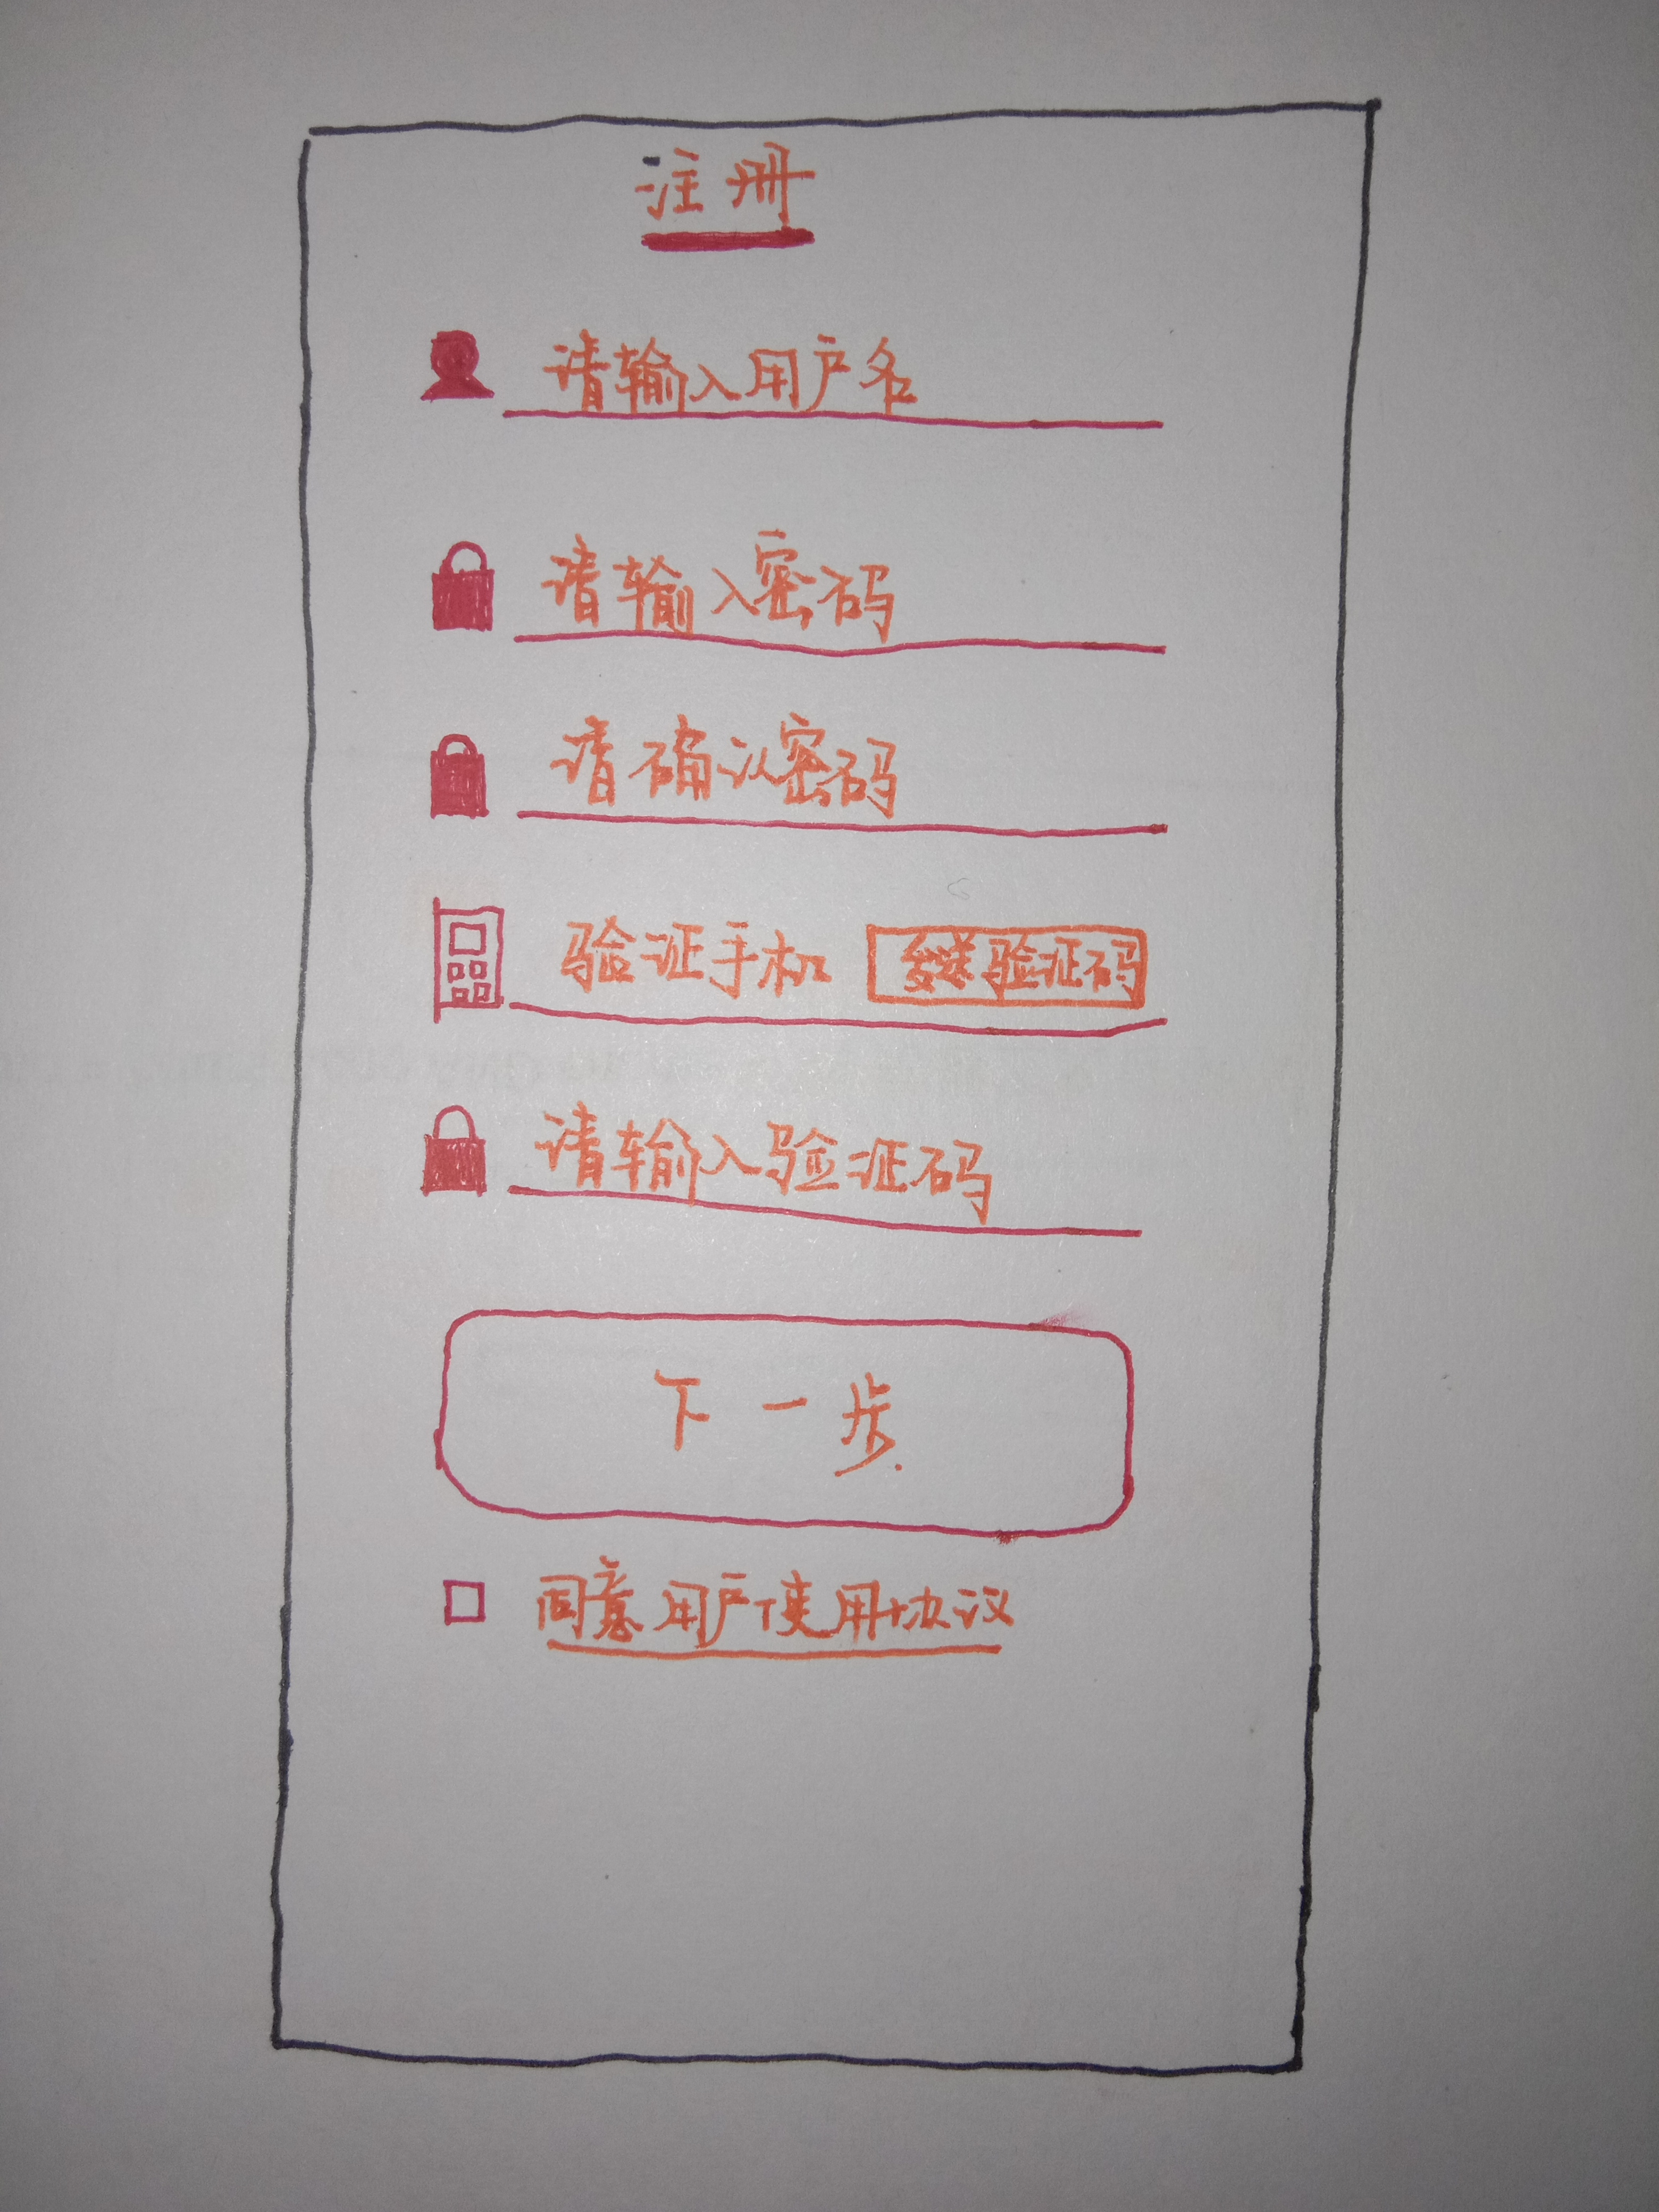 注册
请输入用户名
请输入密码
请确认密码
验证手机 发送验证码
请输入验证码
下一步
同意用户使用协议